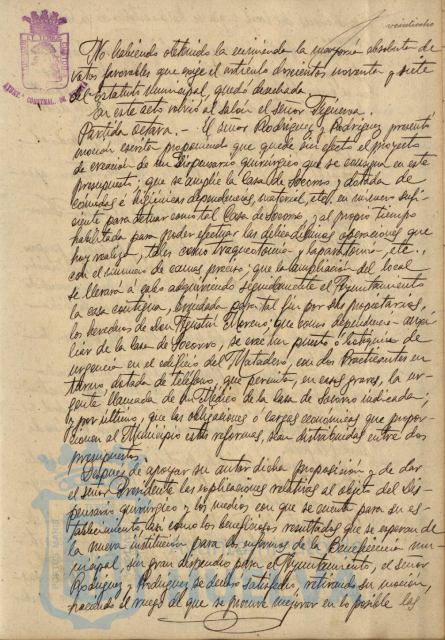 veintiocho
No habiendo obtenido la enmienda la mayoría absoluta de
votos favorables que exige el artículo doscientos noventa y siete
del Estatuto Municipal, quedó desechada.
En este acto volvió al salón el señor Figueroa.
Partida octava. - El señor Rodríguez y Rodríguez presentó
moción escrita proponiendo que quede sin efecto el proyecto
de creación de un Dispensario quirúrgico que se consigna en este
presupuesto; que se amplíe la Casa de Socorro, dotada de
cómodas e higiénicas dependencias, material, etc. en número sufi-
ciente para actuar como tal Casa de Socorro, y al propio tiempo
habilitada para poder efectuar las operaciones que
hoy realiza, tales como traqueotomía y laparatomía, etc.,
con el número de camas preciso; que la ampliación del local
se llevará a cabo adquiriendo seguidamente el Ayuntamiento
la casa contigua, brindada para tal fin por sus propietarios,
los herederos de don Agustín; que como dependencia auxi-
liar de la Casa de Socorro, se cree un puesto o botiquín de
urgencia en el edificio del Matadero, con dos Practicantes en
turno, dotada de teléfono, que permita, en casos graves, la ur-
gente llamada de un Médico de la Casa de Socorro indicada;
y por último, que las obligaciones o cargas económicas que propor-
cionen al Municipio estas reformas, sean distribuidas entre dos
presupuestos.
Después de apoyar su autor dicha proposición y de dar
el señor Presidente las explicaciones relativas al objeto del Dis-
pensario quirúrgico y los medios con que se cuenta para su es-
tablecimiento, así como los beneficiosos resultados que se esperan de
la nueva institución para los enfermos de la Beneficencia mu-
nicipal, sin gran dispendio para el Ayuntamiento, el señor
Rodríguez y Rodríguez se declaró satisfecho, retirando su moción,
haciendo el ruego de que se procure mejorar en lo posible las